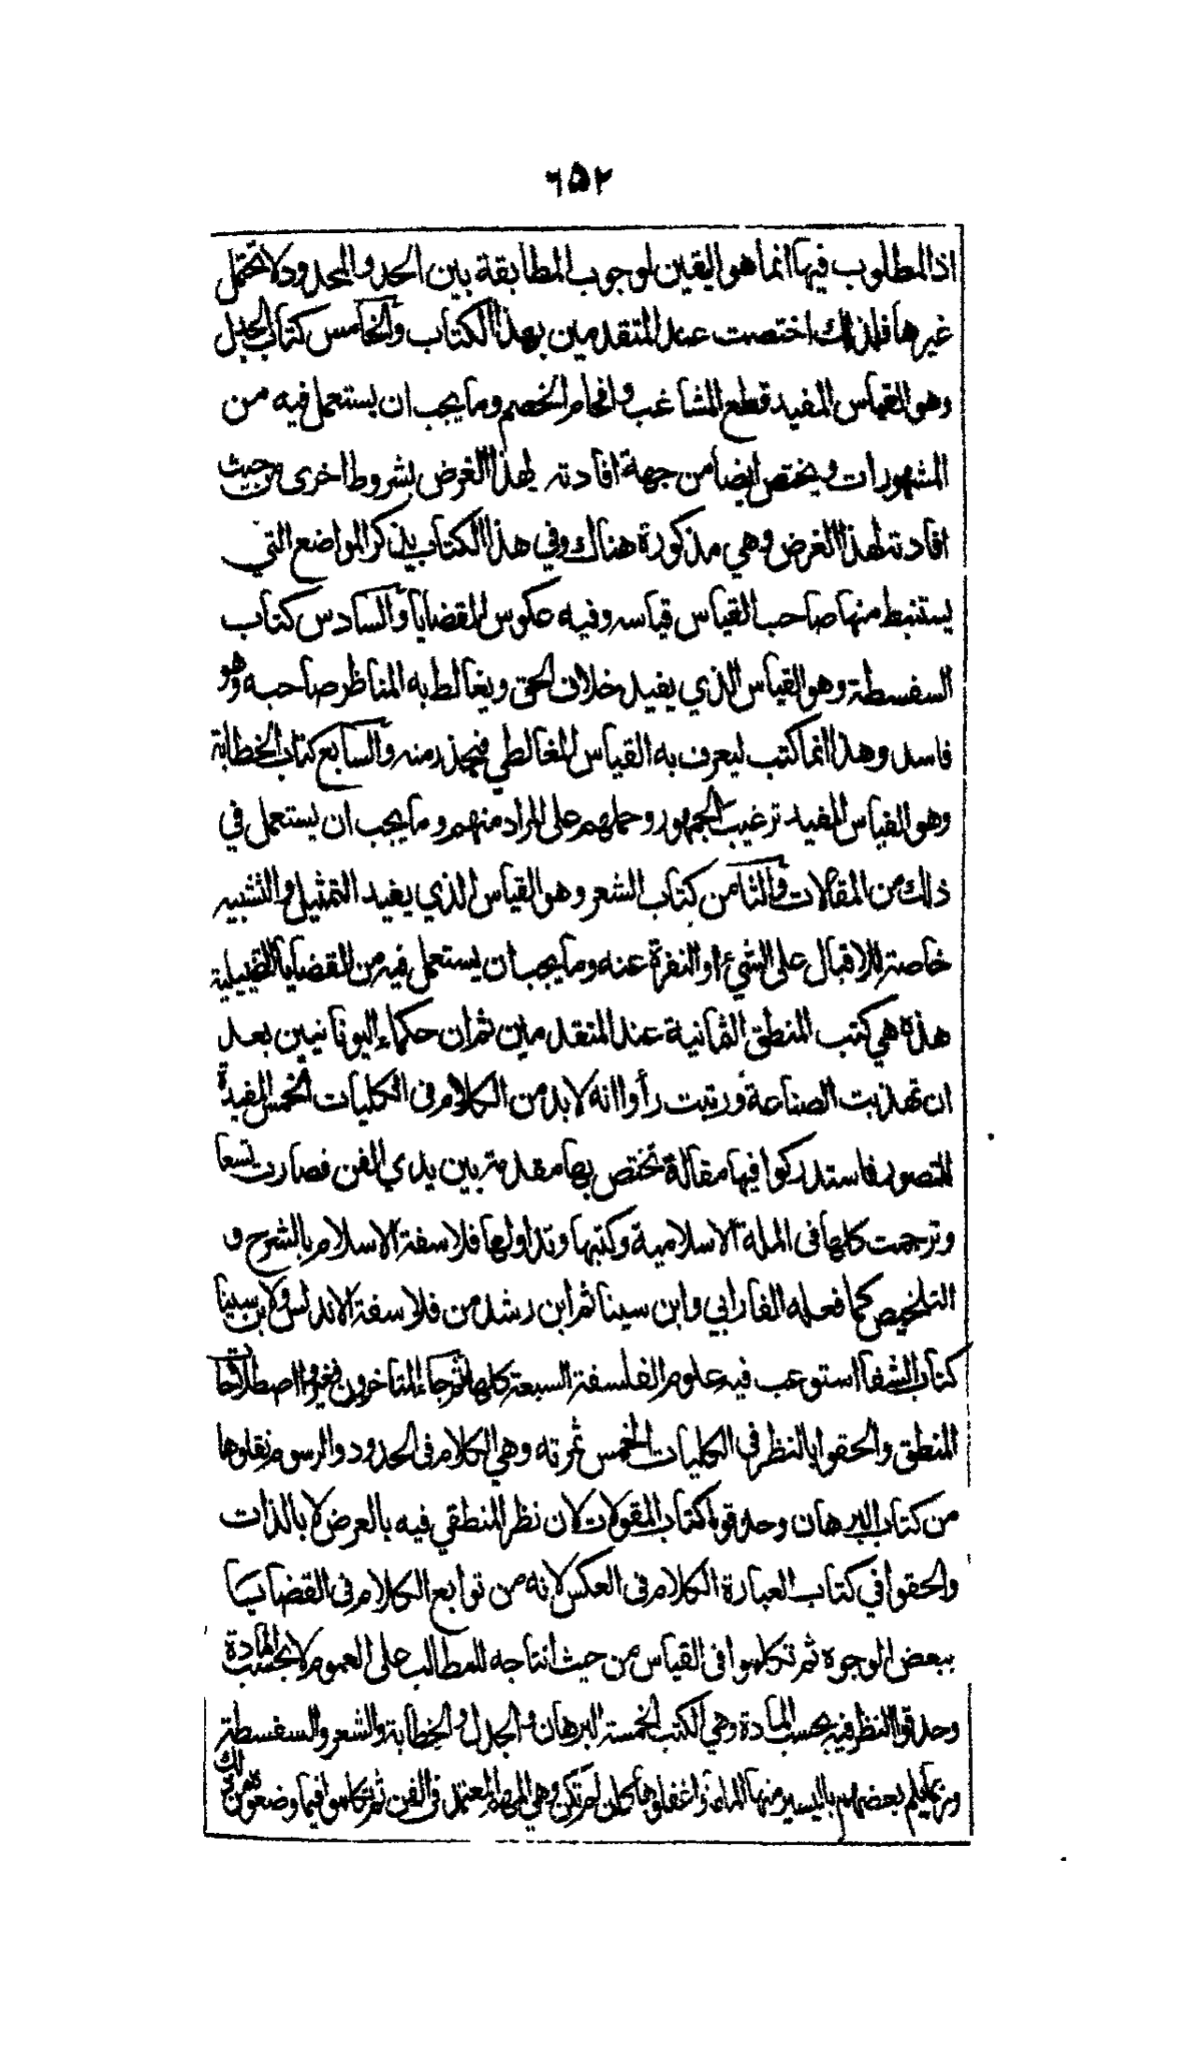 ٦٥٢
اذ المطلوب فيها انما هو اليقين لوجوب المطابقة بين الحد والمحدود لا تحتمل
غيرها فلذلك اختصت عند المتقدمين بهذا الكتاب والخامس كتاب الجدل
وهو القياس المفيد قطع المشاغب وافحام الخصم وما يجب ان يستعمل فيه من
المشهورات ويختص ايضا من جهة افادته لهذا الغرض بشروط اخرى من حيث
افادته لهذا الغرض وهي مذكورة هناك وفي هذا الكتاب يذكر المواضع التي
يستنبط منها صاحب القياس قياسه وفيه عكوس القضايا والسادس كتاب
السفسطة وهو القياس الذي يفيد خلاف الحق ويغالط به المناظر صاحبه وهو
فاسد وهذا انما كتب ليعرف به القياس المغالطي فيحذر منه والسابع كتاب الخطابة
وهو القياس المفيد ترغيب الجمهور وحملهم على المراد منهم وما يجب ان يستعمل في
ذلك من المقالات والثامن كتاب الشعر وهو القياس الذي يفيد التمثيل والتشبيه
خاصة للاقبال على الشيء او النفرة عنه وما يجب ان يستعمل فيه من القضايا التخييلية
هذه هي كتب المنطق الثمانية عند المتقدمين ثم ان حكماء اليونانيين بعد
ان تهذبت الصناعة ورتبت رأوا انه لا بد من الكلام في الكليات الخمس المفيدة
للتصور فاستدركوا فيها مقالة تختص بها مقدمة بين يدي الفن فصارت تسعا
وترجمت كلها في الملة الاسلامية وكتبها وتداولها فلاسفة الاسلام بالشرح و
التلخيص كما فعله الفارابي وابن سينا ثم ابن رشد من فلاسفة الاندلس ولابن سينا
كتاب الشفا استوعب فيه علوم الفلسفة السبعة كلها ثم جاء المتاخرون فغيروا اصطلاح
المنطق والحقوا بالنظر في الكليات الخمس ثمرته وهي الكلام في الحدود والرسوم نقلوها
من كتاب البرهان وحذفوا كتاب المقولات لان نظر المنطقي فيه بالعرض لا بالذات
والحقوا في كتاب العبارة الكلام في العكس لانه من توابع الكلام في القضايا
ببعض الوجوه ثم تكلموا في القياس من حيث انتاجه للمطالب على العموم لا بحسب المادة
وحذفوا النظر فيه بحسب المادة وهي الكتب الخمسة البرهان والجدل والخطابة والشعر والسفسطة
وربما يلم بعضهم باليسير منها الماما واغفلوها كان لم تكن وهي المهم المعتمد في الفن ثم تكلموا فيما وضعوه من ذلك